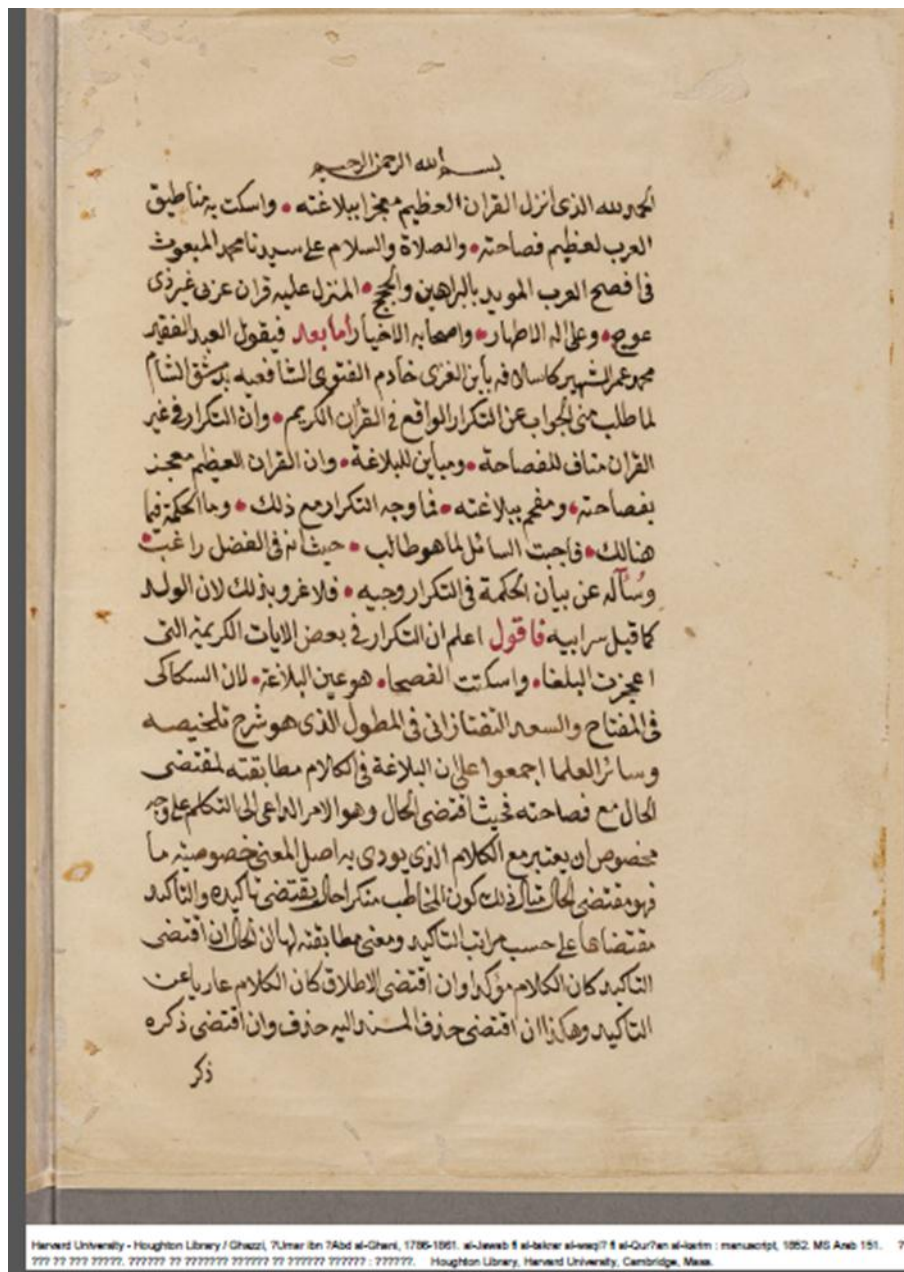 بسم الله الرحمن الرحيم
الحمد لله الذى انزل القران العظيم معجزا ببلاغته • واسكت به مناطيق
العرب لعظيم فصاحته • والصلاة والسلام على سيدنا محمد المبعوث
فى افصح العرب المويد بالبراهين والحجج • المنزل عليه قران عربى غير ذى
عوج • وعلى اله الاطهار • واصحابه الاخيار أما بعد فيقول العبد الفقير
محمد عمر الشهير كاسلافه بابن الغزى خادم الفتوى الشافعيه بدمشق الشام
لما طلب منى الجواب عن التكرار الواقع فى القرآن الكريم • وان التكرار فى غير
القران مناف للفصاحة • ومباين للبلاغة • وان القران العظيم معجز
بفصاحته • ومفحم ببلاغته • فما وجه التكرار مع ذلك • وما الحكمة فيما
هنالك • فاجبت السائل لما هو طالب • حيث انه فى الفضل راغب •
وسُآله عن بيان الحكمة فى التكرار وجيه • فلا غرو بذلك لان الولد
كما قيل سر ابيه فاقول اعلم ان التكرار فى بعض الايات الكريمة التى
اعجزت البلغا • واسكتت الفصحا • هو عين البلاغة • لان السكاكى
فى المفتاح والسعد التفتازانى فى المطول الذى هو شرح تلخيصه
وسائر العلما اجمعوا على ان البلاغة فى الكلام مطابقته لمقتضى
الحال مع فصاحته فحيث اقتضى الحال وهو الامر الداعى الى التكلم على وجه
مخصوص ان يعتبر مع الكلام الذى يودى به اصل المعنى خصوصية ما
فهو مقتضى الحال مثال ذلك كون المخاطب منكرا حال يقتضى تاكيده والتاكيد
مقتضاها على حسب مراتب التاكيد ومعنى مطابقته لها ان الحال ان اقتضى
التاكيد كان الكلام مؤكدا وان اقتضى الاطلاق كان الكلام عاريا عن
التاكيد وهكذا ان اقتضى حذف المسند اليه حذف وان اقتضى ذكره
ذكر
Harvard University - Houghton Library / Ghazzi, ?Umar ibn ?Abd al-Ghani, 1786-1861. al-Jawab fi al-takrar al-waqi? fi al-Qur?an al-karim : manuscript, 1852. MS Arab 151. ?
??? ?? ??? ?????. ?????? ?? ??????? ?????? ?? ?????? ?????? : ??????. Houghton Library, Harvard University, Cambridge, Mass.